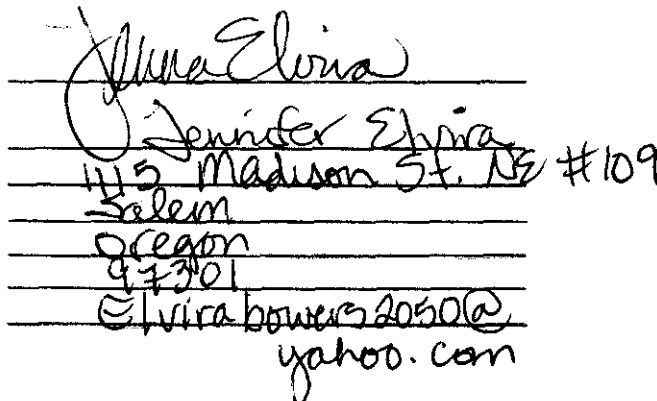 Jenna Elvira
Jennifer Elvira
1115 Madison St. NE #109
Salem
Oregon
97301
Elvirabowers2050@
yahoo.com